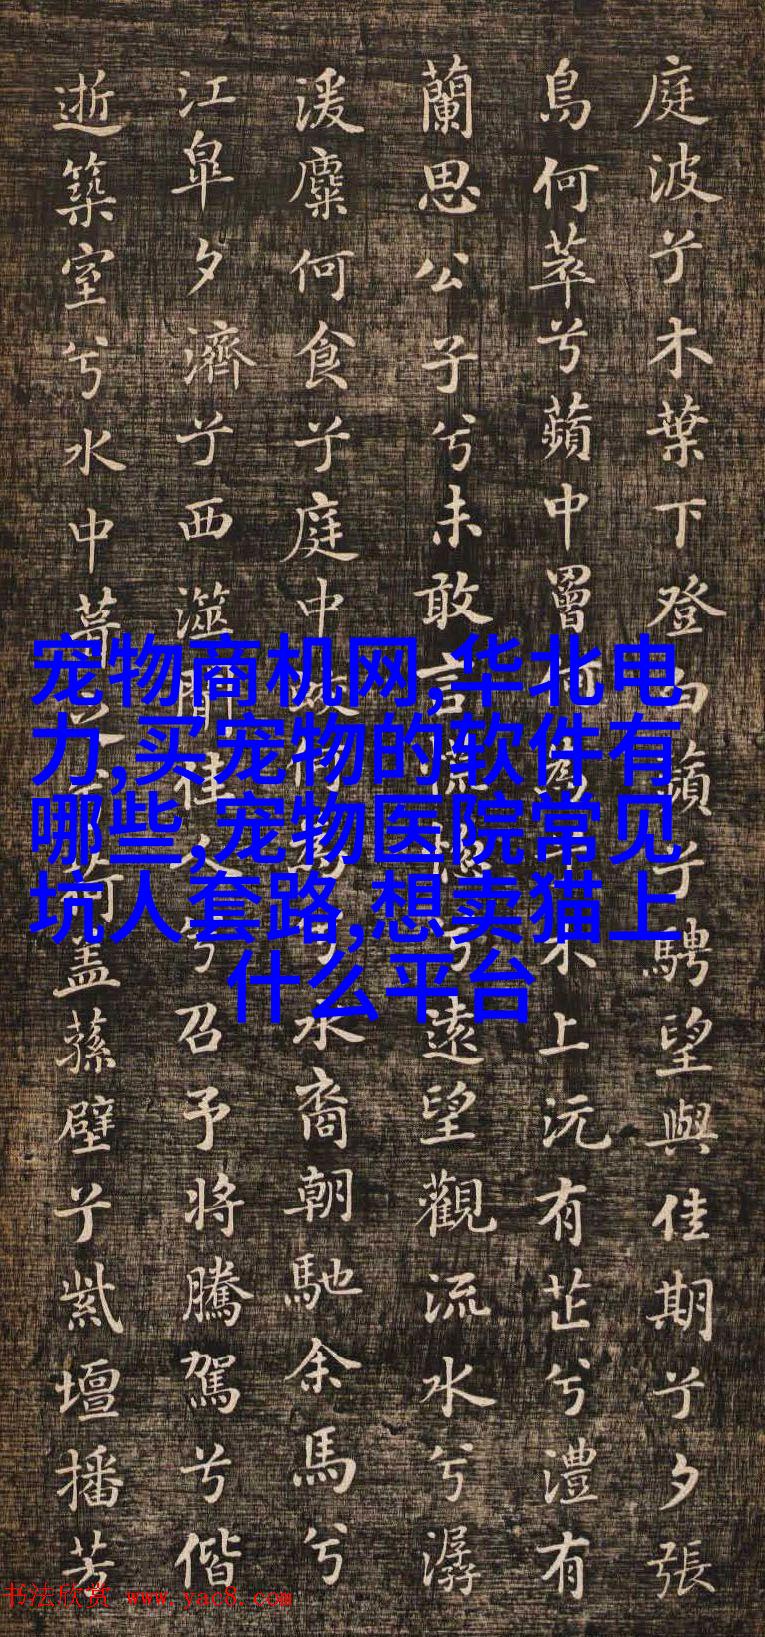 庭波兮木葉下登白蘋兮騁望與佳期兮夕張
鳥何萃兮蘋中罾何為木上沅有芷兮澧有
蘭思公子兮未敢言兮遠望觀流水兮潺
湲麋何食兮庭中何水裔朝馳余馬兮
江皐夕濟兮西澨聞佳兮召予將騰駕兮偕
逝築室兮水中葺荷蓋蓀壁兮紫壇播芳
宠物商机网,华北电
力,买宠物的软件有
哪些,宠物医院常见
坑人套路,想卖猫上
什么平台
书法欣赏 www.yac8.com